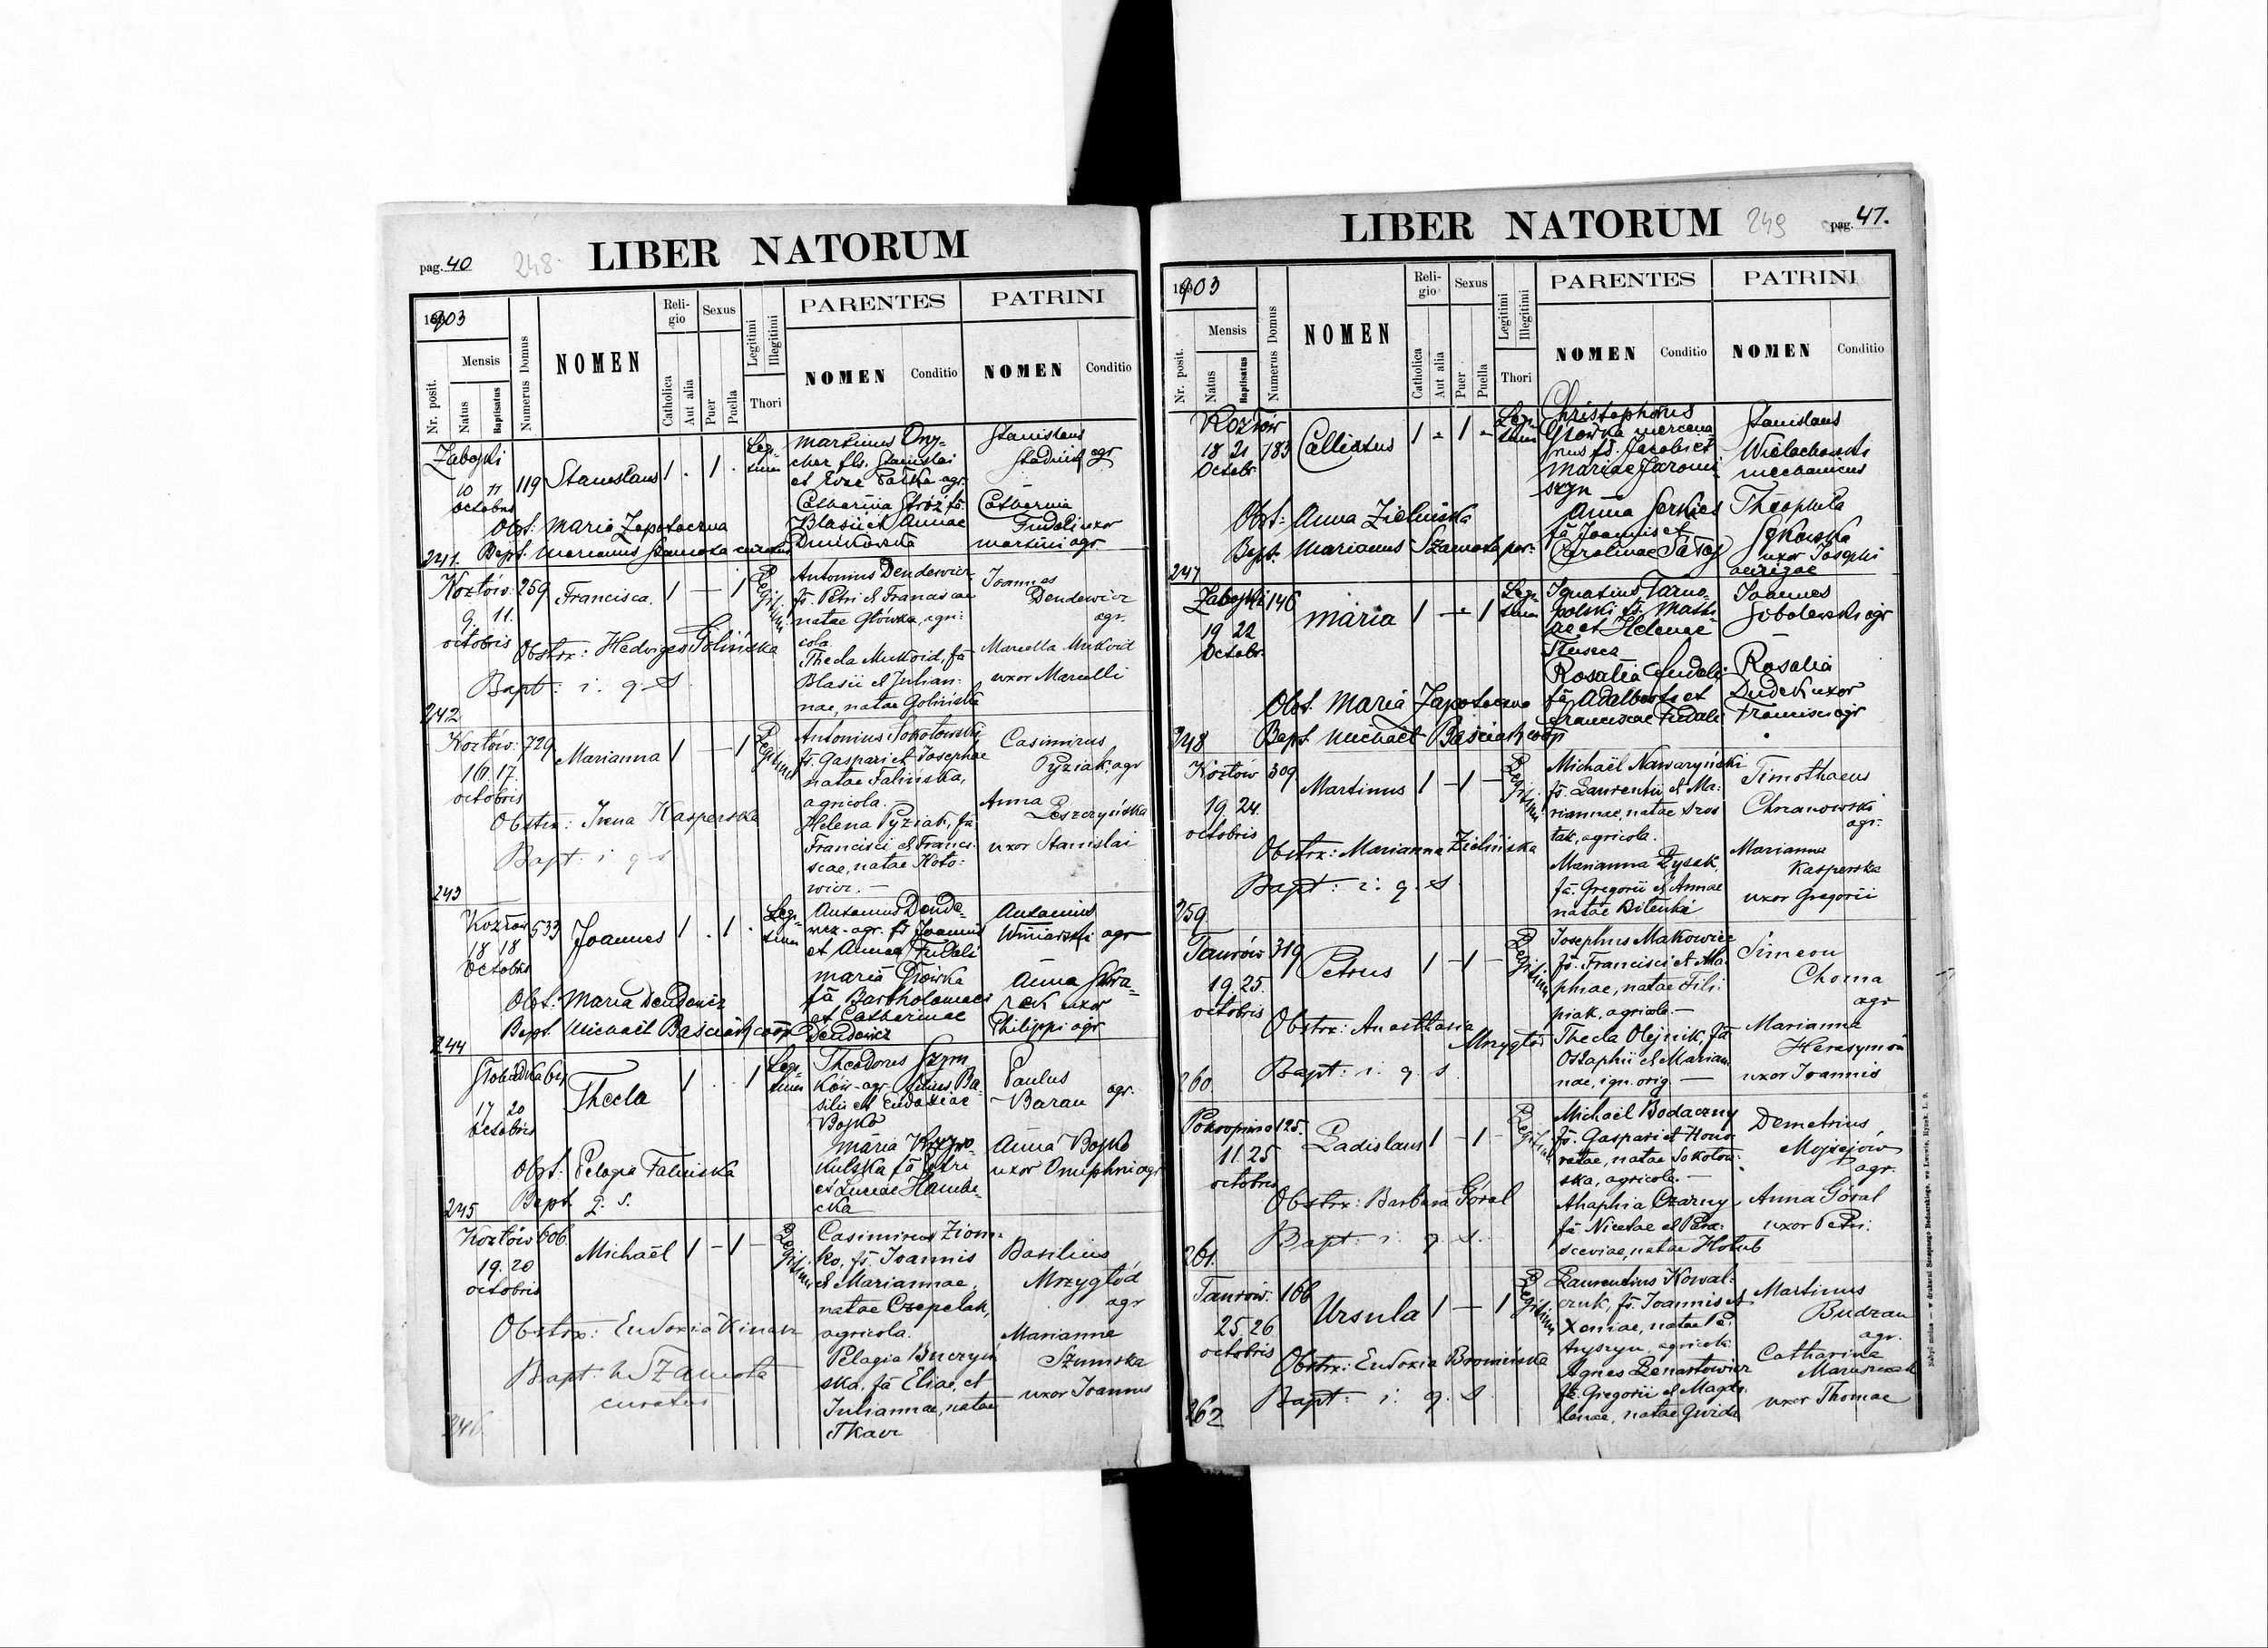 pag. 40 248. LIBER NATORUM
1903
Nr. posit. Mensis Natus Baptisatus Numerus Domus NOMEN Religio Catholica Aut alia Sexus Puer Puella Legitimi Illegitimi Thori PARENTES NOMEN Conditio PATRINI NOMEN Conditio
Zabojki
10 11
octobris
119 Stanislaus 1 . 1 . Legitimi
Martinus Ony-
cher fls. Stanislai
et Evae agr.
Catharina Stróż fa
Blasii et Annae
Stanislaus
agr
Catharina
Fudali uxor
Martini agr
Obst: Maria Zapotoczna
241. Bapt. Marianus Szamota curatus
Kozłów 259 Francisca. 1 — 1 Legitimi
9. 11.
octobris
Antonius Dendewicz
fs. Petri et Franciscae
natae Główka, agri-
cola.
Thecla Mukoid, fa
Blasii et Julian-
nae, natae Golińska
Joannes
Dendewicz
agr.
Marcella Mukoid
uxor Marcelli
Obstrx: Hedviges Golińska
Bapt: i. q. s.
242
Kozłów. 729 Marianna 1 — 1 Legitimi
16. 17.
octobris
Antonius Sokołowski
fs. Gaspari et Josephae
natae Falińska,
agricola.
Helena Pyziak, fa
Francisci et Franci-
scae, natae Koto-
wicz. —
Casimirus
Pyziak, agr
Anna
Leszczyńska
uxor Stanislai
Obstrx: Irena Kasperska
Bapt: i q s
243
Kozłów 533 Joannes 1 . 1 . Legitimi
18 18
Octobris
Antonius Dende-
wicz agr. fs Joannis
et Annae Fudali
Maria Główka
fa Bartholomaei
et Catharinae
Dendewicz
Antonius
Winiarski agr
Anna Skra-
uxor
Philippi agr
Obst: Maria Dendewicz
Bapt. Michaël Baściak coop
244
61 Thecla 1 . . 1 Legitimi
17 20
Octobris
Theodorus Szym
ków agr. filius Ba-
silii et Eudoxiae
Bojko
Maria Krzywo
kulska fa Petri
et Luciae Hambi-
cka
Paulus
Baran agr.
Anna Bojko
uxor Onuphrii agr
Obst. Pelagia Falińska
245 Bapt. q. s.
Kozłów 606. Michaël 1 — 1 — Legitimi
19. 20
octobris
Casimirus Ziom-
ko, fs. Joannis
et Mariannae,
natae Czepelak,
agricola.
Pelagia Buczyń
ska, fa Eliae, et
Juliannae, natae
Tkacz
Basilius
Mrzygłód
agr
Marianna
Szumska
uxor Joannis
Obstrx: Eudoxia Kinarz
Bapt: M Szamota
curatus
246
LIBER NATORUM 249 pag. 47.
1903
Nr. posit. Mensis Natus Baptisatus Numerus Domus NOMEN Religio Catholica Aut alia Sexus Puer Puella Legitimi Illegitimi Thori PARENTES NOMEN Conditio PATRINI NOMEN Conditio
Kozłów
18 21 183 Callixtus 1 - 1 - Legitimi
Octobr.
Christophorus
Główka mercena
rius fs. Jacobi et
Mariae Jaromi
szyn
Anna Serkies
fa Joannis et
Carolinae
Stanislaus
Wielachowski
mechanicus
Theophila
uxor Josephi
aurigae
Obst: Anna Zielińska
Bapt. Marianus Szamota par.
247
Zabojki 146 Maria 1 — 1 Legitimi
19 22
Octobr.
Ignatius Tarno-
polski fs. Math-
iae et Helenae
Rosalia Fudali
fa Adalberti et
Franciscae Fudali
Joannes
Sobolewski agr
Rosalia
Dudek uxor
Francisci agr
Obst. Maria Zapotoczna
248 Bapt. Michaël Baściak coop
Kozłów 309 Martinus 1 — 1 — Legitimi
19. 24.
octobris
Michaël Nawaryński
fs. Laurentii et Ma-
riannae, natae Szos
tak, agricola.
Marianna Łysak,
fa. Gregorii et Annae
natae Bilenki
Timothaeus
Chrzanowski
agr.
Marianna
Kasperska
uxor Gregorii
Obstrx: Marianna Zielińska
Bapt: i. q. s
259
Taurów 319 Petrus 1 — 1 — Legitimi
19. 25.
octobris
Josephus Makowiec
fs. Francisci et Aha-
phiae, natae Fili-
piak, agricola. —
Thecla Olejnik, fa
Ostaphii et Marian
nae, ign. orig. —
Simeon
Choma
agr
Marianna
Herasymów
uxor Joannis
Obstrx: Anasthasia
Mrzygłód
260 Bapt: i. q. s.
Pokropiwna 125. Ladislaus 1 — 1 — Legitimi
11. 25
octobris
Michaël Bodaczny
fs. Gaspari et Hono-
ratae, natae Sokołow-
ska, agricola. —
Ahaphia Czarny
fa Nicetae et Para-
sceviae, natae Hołub
Demetrius
Mojsejów
agr.
Anna Góral
uxor Petri.
Obstrx: Barbara Góral
Bapt: i. q. s.
261.
Taurów. 166 Ursula 1 — 1 Legitimi
25. 26
octobris
Laurentius Kowal-
czuk, fs. Joannis et
Xeniae, natae Pe-
tryszyn, agricola.
Agnes Lenartowicz
fa. Gregorii et Magda-
lenae, natae Gwizda
Martinus
Budzan
agr.
Catharina
Maruszczak
uxor Thomae
Obstrx: Eudoxia Bromińska
262 Bapt: i. q. s.